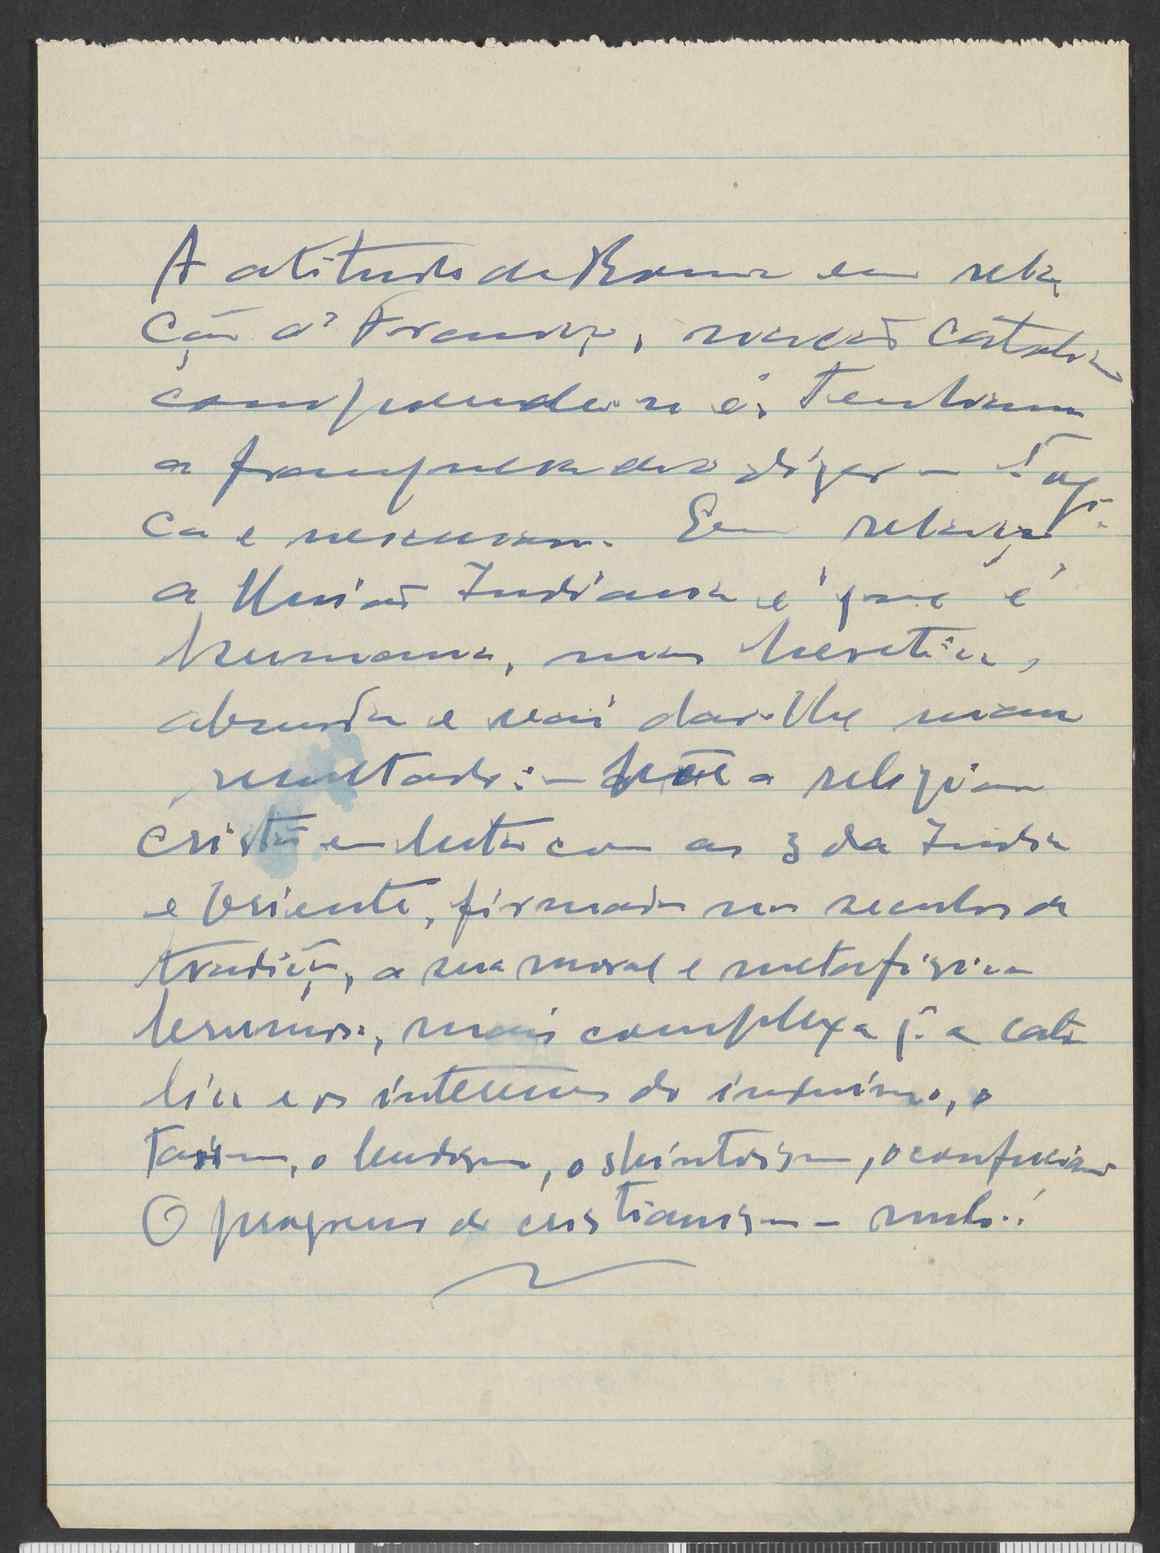 A atitude de Roma em rela
ção á França, nação catolica
compreende-se e
a franqueza de o dizer — logi
ca e . Em relação
a União Indiana é que é
humana, mas heretica,
absurda e vai dar-lhe mau
resultado: — põe a religião
cristã em luta com as 3 da India
e Oriente, firmada nos seculos de
tradição, a sua moral e metafisica
, mais complexa q. a cato
lica e os do induismo, o
taoismo, o budismo, o shintoismo, o confucismo
O progresso do cristianismo — nulo!